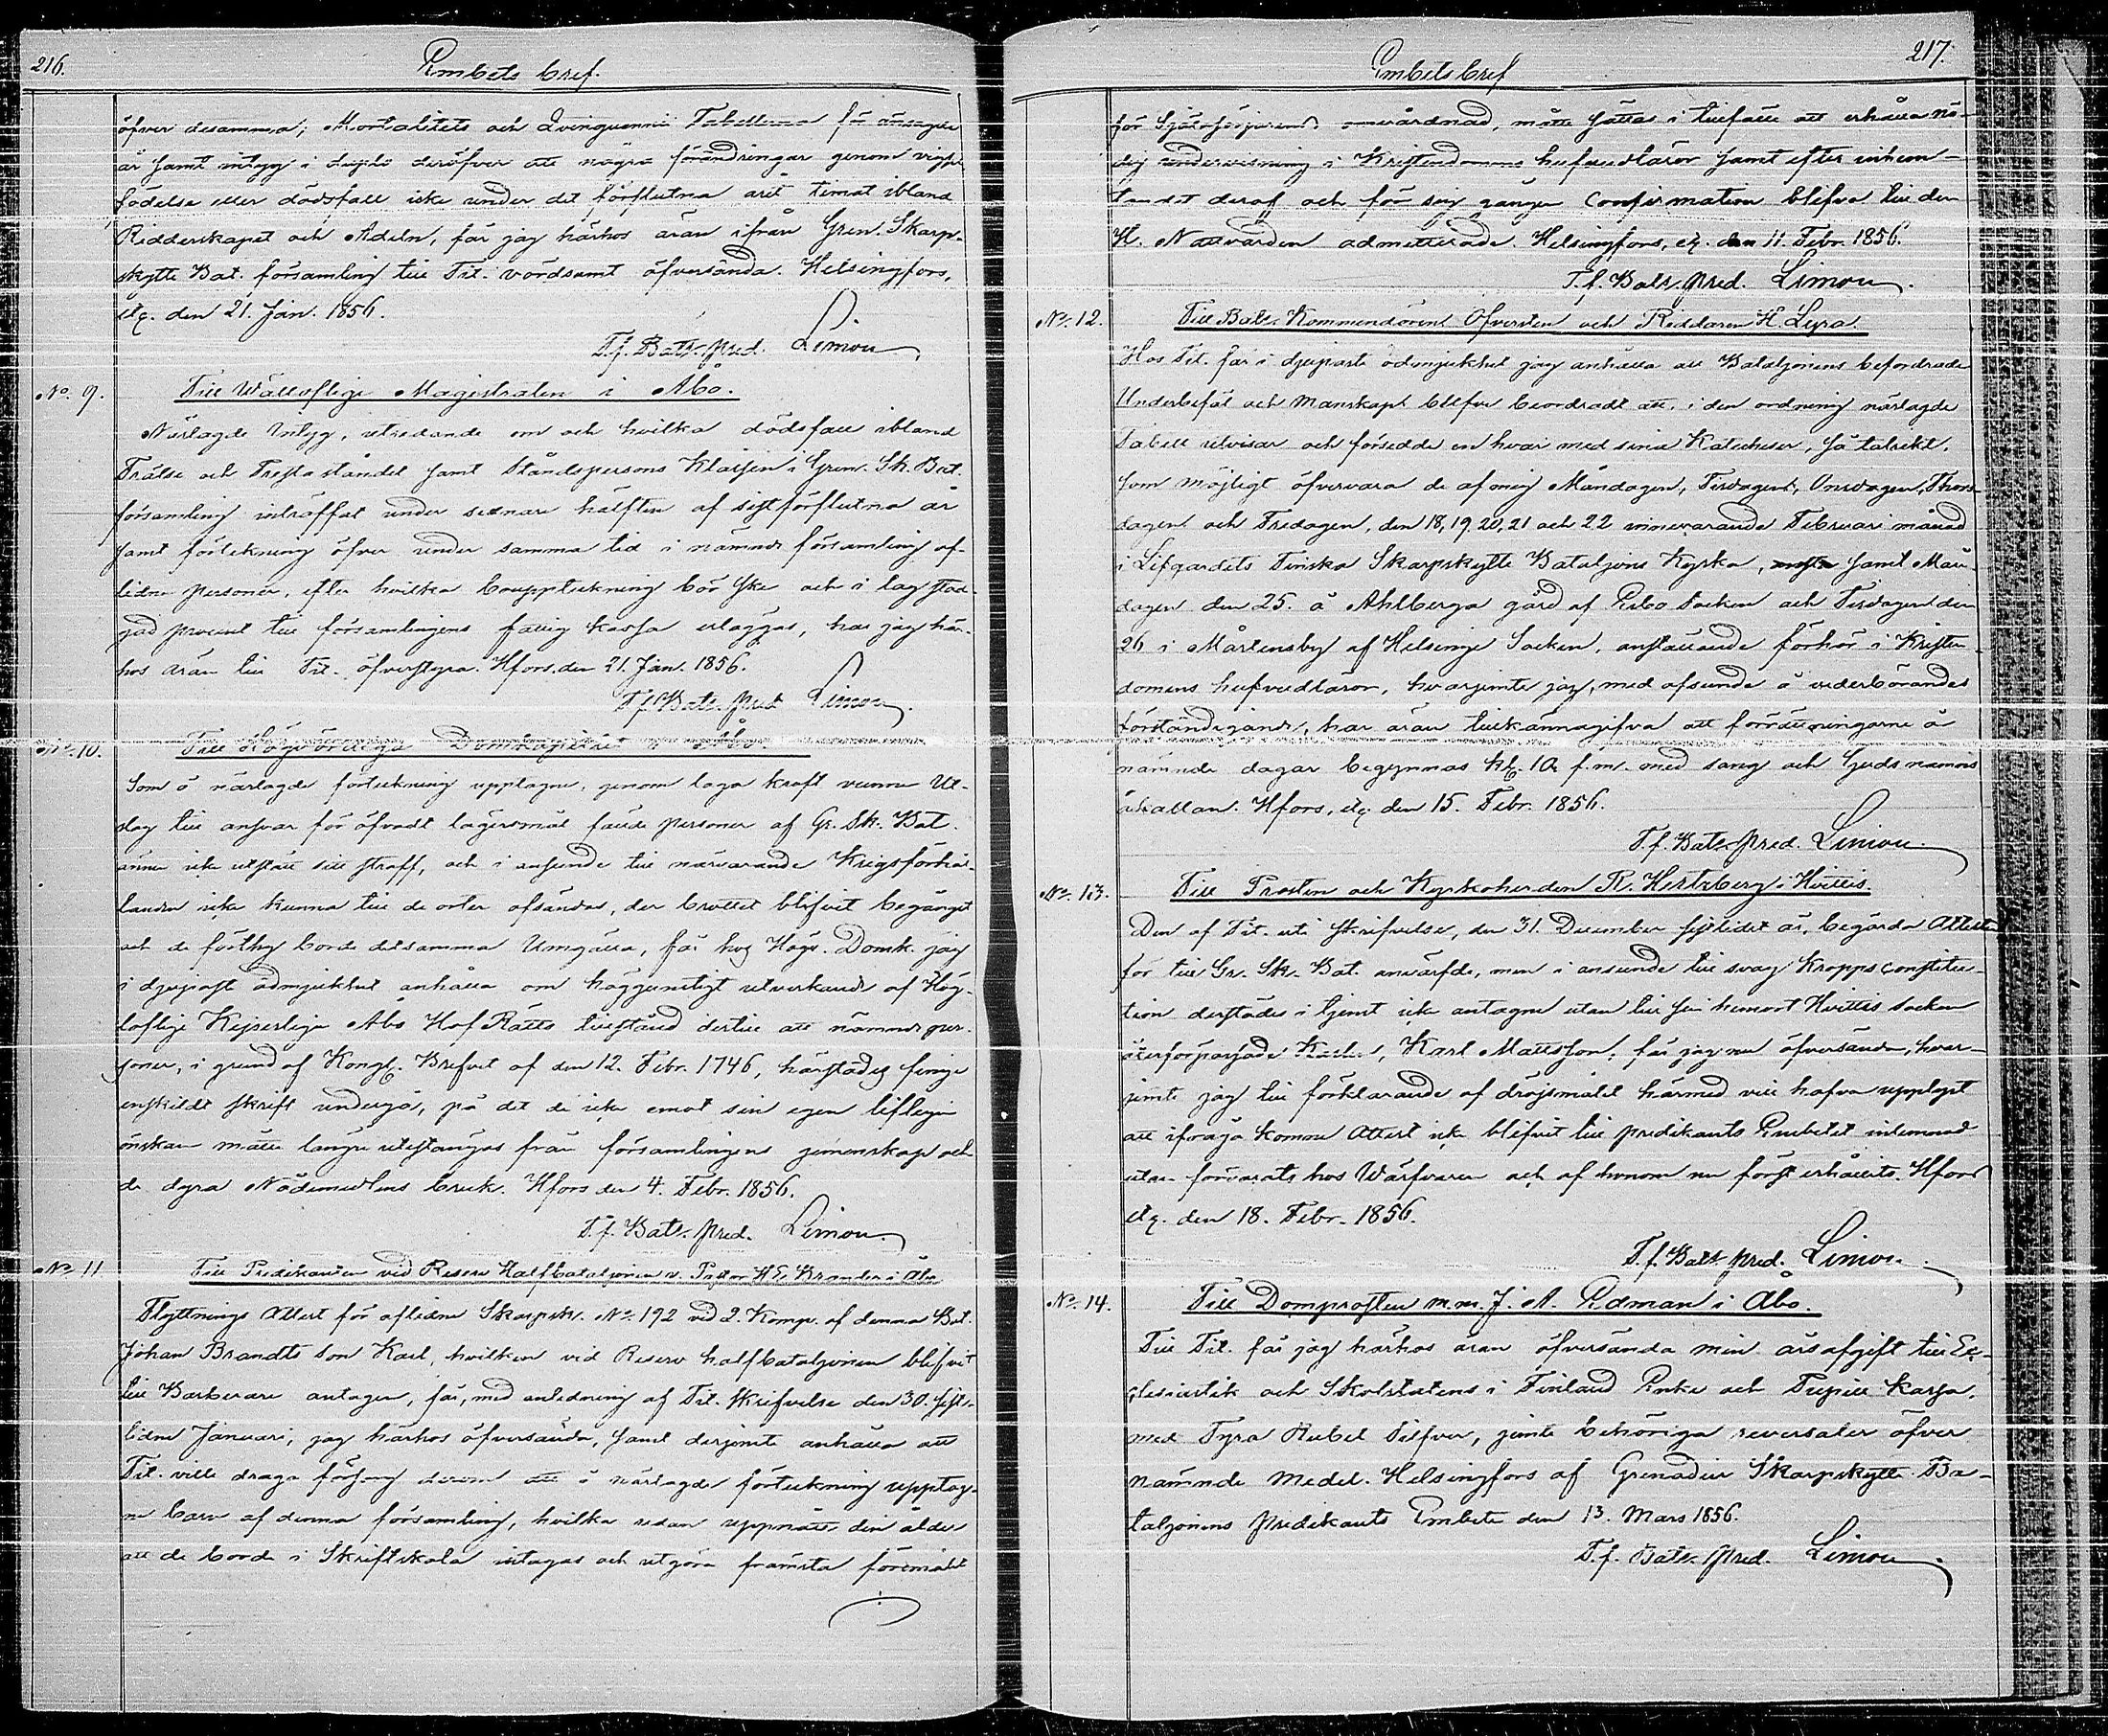 216.
Embets bref.
öfver desamma; Mortalitets och Qvinquennii Tabellerna för
år samt intyg i duplo deröfver att några förändringar genom vigsel
födelse eller dödsfall icke under det förflutna året timat ibland
Ridderskapet och Adeln, får jag härhos äran ifrån Gren. Skarp-
skytte Bat. församling till Tit. vördsamt öfversända. Helsingfors,
etc. den 21. Jan. 1856.
T.f. Bats. pred. Limon
No. 9.
Till Wällofliga Magistraten i Åbo.
Närlagde Intyg, utredande om och hvilka dödsfall ibland
Frälse och Presta ståndet samt Ståndspersons Klassen i Gren. Sk. Bat.
församling inträffat under sednare hälften af sistförflutna år
samt förtekning öfver under samma tid i nämnde församling af-
lidna personer, efter hvilka bouppteckning bör ske och i lag stad-
gad procent till församlingens fattig kassa erläggas, har jag här-
hos äran till Tit. öfverstyra. Hfors, den 21. Jan. 1856.
T.f. Bats. pred Limon
No. 10.
Till Högvördiga Domkapitlet i Åbo.
Som å närlagde förtekning upptagne, genom laga kraft vunne Ut-
slag till ansvar för öfvadt lägersmål fällde personer af Gr. Sk. Bat.
ännu icke utstått sitt straff, och i anseende till närvarande Krigsförhål-
landen icke kunna till de orter afsändas, der brottet blifvit begånget
och de förthy borde detsamma Umgälla, får hos Högv. Domk. jag
i djupast ödmjukhet anhålla om höggunstigt utverkande af Hög-
loflige Kejserliga Åbo Hof Rätts tillstånd dertill att nämnde per-
soner, i grund af Kongl. Brefvet af den 12. Febr. 1746, härstädes finge
enskildt skrift undergå, på det de icke emot sin egen lifliga
önskan måtte längre utestängas från församlingens gemenskap och
de dyra Nådemedlens bruk. Hfors den 4. Febr. 1856.
T.f. Bats. pred. Limon
No. 11
Till Predikanten vid Reserv Halfbataljonen v. Pastor H. E. Brander i Åbo
Flyttnings Attest för aflidne Skarpsk. No. 192 vid 2. Komp. af denna Bat.
Johan Brandts son Karl, hvilken vid Reserv halfbataljonen blifvit
till Barberare antagen, får, med anledning af Tit. skrifvelse den 30. sist-
lidne Januari, jag härhos öfversända, samt derjemte anhålla att
Tit. ville draga försorg derom att å närlagde förteckning upptag-
ne barn af denna församling, hvilka redan uppnått den ålder
att de borde i Skriftskola intagas och utgöra främsta föremålet
217.
Embetsbref
för Själasörjarens omvårdnad, måtte sättas i tillfälle att erhålla nö-
dig undervisning i Kristendomens hufvudläror samt efter inhem-
tandet deraf och för sig gången Confirmation blifva till den
H. Nattvarden admitterade. Helsingfors, etc. den 11. Febr. 1856.
T.f. Bats. pred. Limon.
No. 12.
Till Bats. Kommendören Öfversten och Riddaren H. Lyra.
Hos Tit. får i djupaste ödmjukhet jag anhålla att Bataljonens befordrade
Underbefäl och Manskap blefve beordradt att, i den ordning närlagde
Tabell utvisar och försedde en hvar med sina Katecheser, så talrikt,
som möjligt öfvervara de af mig Måndagen, Tisdagen, Onsdagen, Thors-
dagen och Fredagen, den 18, 19, 20, 21 och 22 innevarande Februari månad
i Lifgardets Finska Skarpskytte Bataljons Kyrka, samt Mån-
dagen den 25. å Ahlberga gård af Esbo Socken och Tisdagen den
26 i Mårtensby af Helsinge Socken, anställande förhör i Kristen-
domens hufvudläror, hvarjemte jag, med afseende å vederbörandes
förständigande, har äran tillkännagifva att förrättningarne å
nämnde dagar begynnas kl. 10 f.m. med sång och Guds namns
åkallan. Hfors, etc. den 15. Febr. 1856.
T.f. Bats. pred. Limon.
No. 13.
Till Prosten och Kyrkoherden R. Hertzberg i Hvittis.
Den af Tit. uti skrifvelse, den 31. December sistlidet år, begärda Attesten
för till Gr. Sk. Bat. anvärfde, men i anseende till svag Kropps constitu-
tion derstädes i tjenst icke antagne utan till sin hemort Hvittis socken
återförpassade Karl Mattsson, får jag nu öfversända, hvar-
jemte jag till förklarande af dröjsmålet härmed vill hafva upplyst
att ifråga komne Attest icke blifvit till predikants Embetet inlemnad
utan förvarats hos Wärfvaren och af honom nu först erhållits. Hfors
etc. den 18. Febr. 1856.
T.f. Bats. pred. Limon.
No. 14.
Till Domprosten m.m. J. A. Edman i Åbo.
Till Tit. får jag härhos äran öfversända min årsafgift till Ec-
clesiastik och Skolstatens i Finland Enke och Pupill Kassa,
med Fyra Rubel Silfver, jemte behöriga reversaler öfver
nämnde medel. Helsingfors af Grenadier Skarpskytte Ba-
taljonens Predikants Embete den 13. Mars 1856.
T.f. Bats. pred. Limon